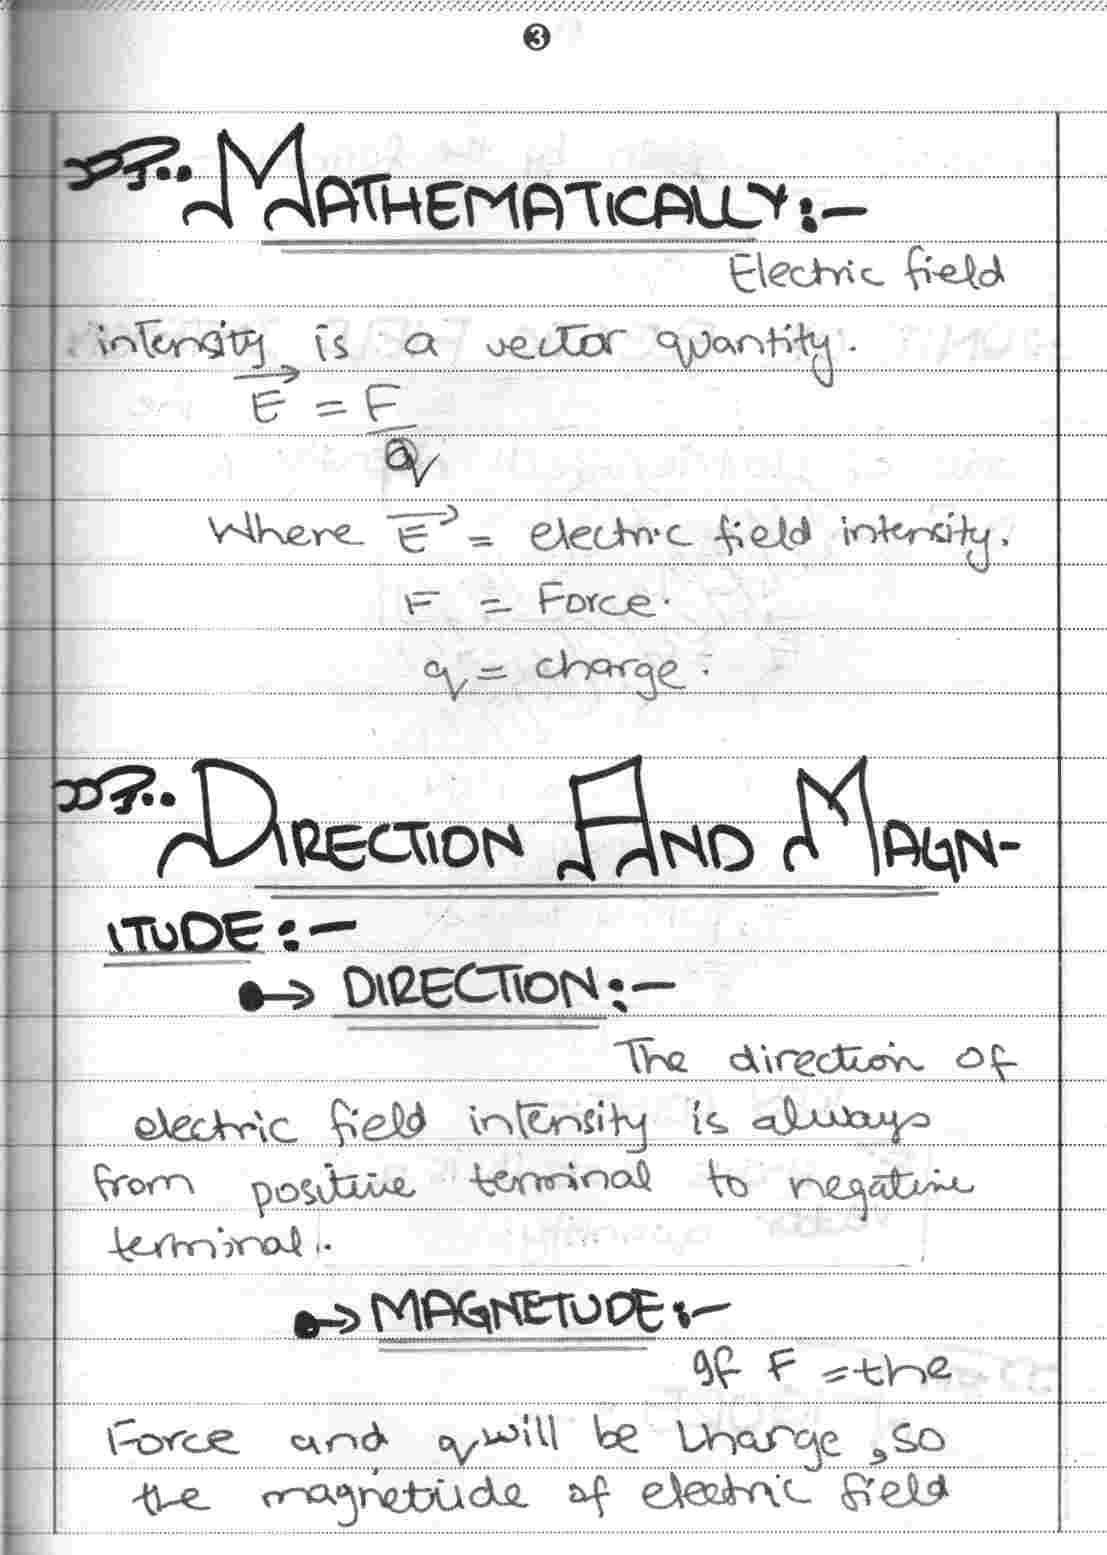 3
MATHEMATICALLY:-
Electric field
intensity is a vector quantity.
E = F
q
Where E = electric field intensity.
F = Force.
q = charge.
DIRECTION AND MAGN-
ITUDE:-
DIRECTION:-
The direction of
electric field intensity is always
from positive terminal to negative
terminal.
MAGNETUDE:-
If F = the
Force and q will be charge, so
the magnetude of electric field